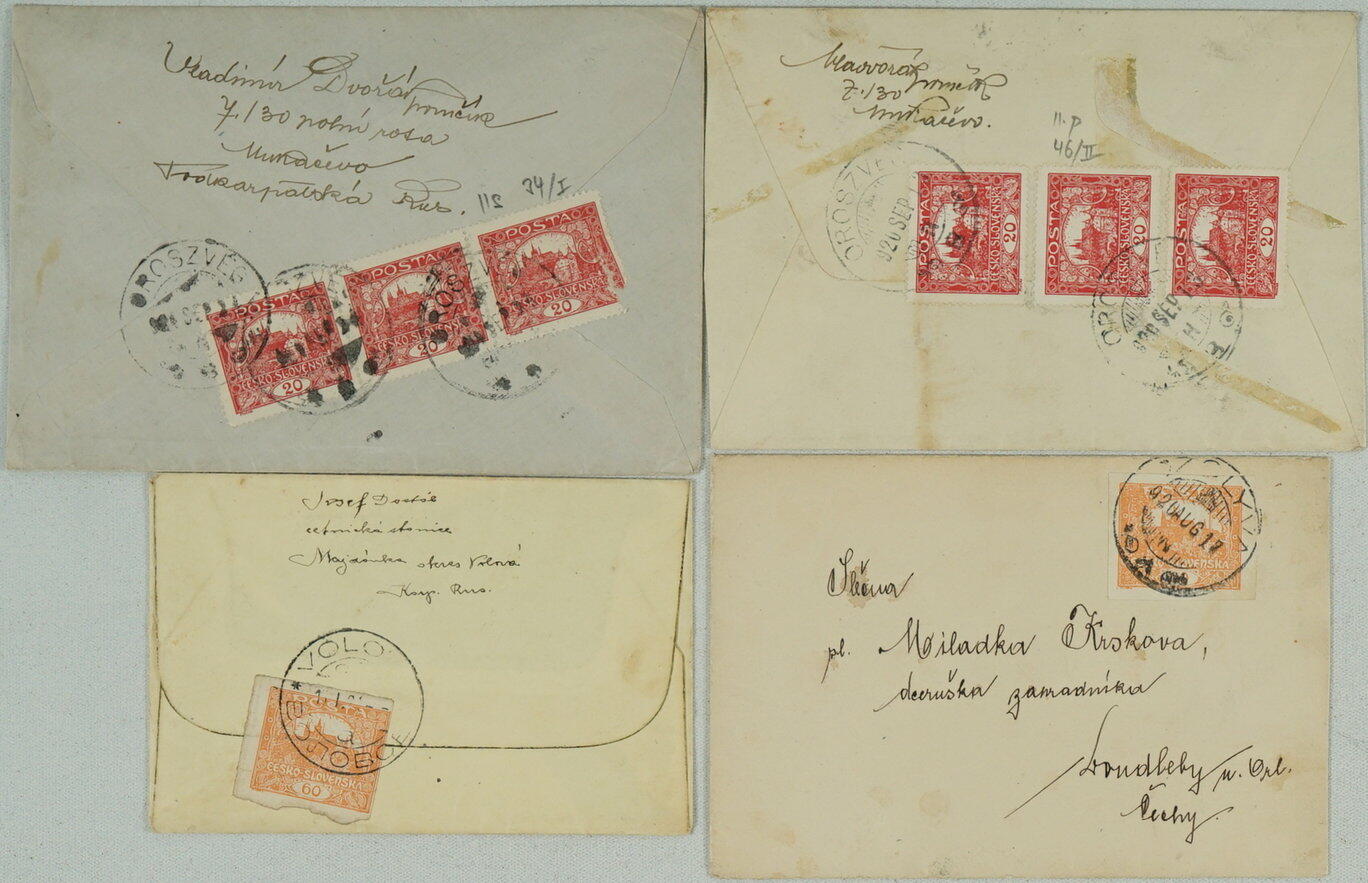 Vladimír Dvořák
7./30 polní rota
Mukačevo
Podkarpatská Rus.
11s 34/I
POSTA
ČESKO-SLOVENSKÁ
20
POSTA
ČESKO-SLOVENSKÁ
20
POSTA
ČESKO-SLOVENSKÁ
20
OROSZVÉG
SEP
OROSZVÉG
7./30
Mukačevo.
11.p
46/II
OROSZVÉG
920 SEP
POSTA
ČESKO-SLOVENSKÁ
20
POSTA
ČESKO-SLOVENSKÁ
20
POSTA
ČESKO-SLOVENSKÁ
20
920 SEP
Josef Dostál
četnická stanice
Majdánka okres Volová
Karp. Rus.
VOLO
POSTA
ČESKO-SLOVENSKÁ
60
SZOLYVA
920 AUG 17
Slečna
pl. Miladka Krskova,
dceruška zahradníka
Doudleby n. Orl.
Čechy.